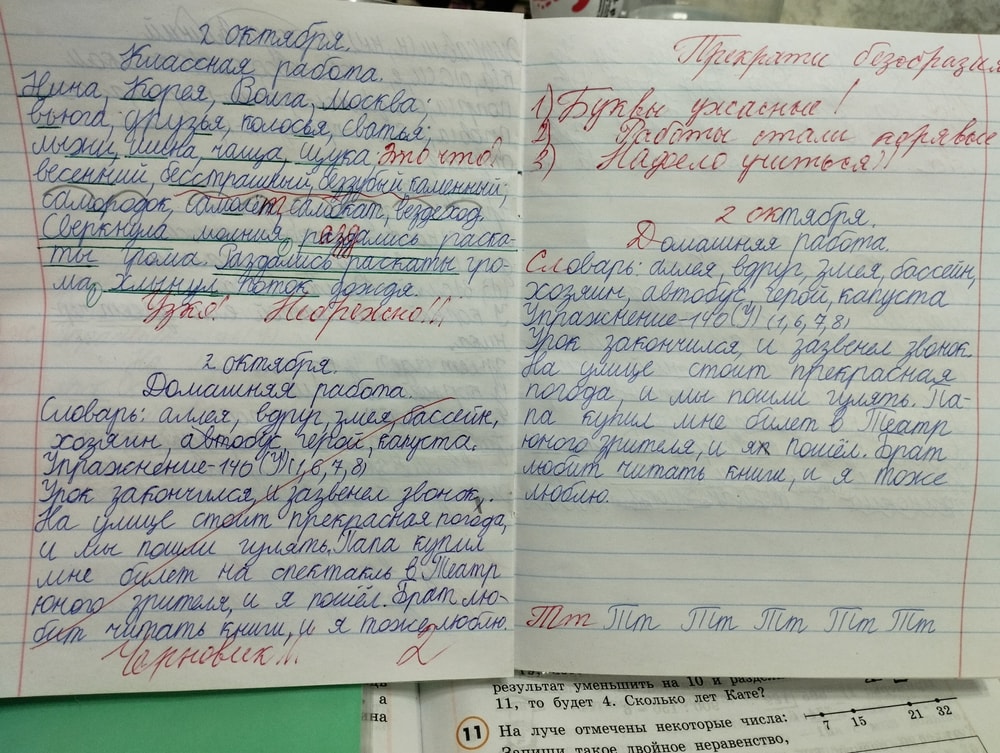 2 октября.
Классная работа.
Нина, Корея, Волга, Москва;
вьюга, друзья, колосья, сватья;
лыжи, шина, чаща, щука. Это что?
весенний, бесстрашный, беззубый, каменный;
самородок, самолёт, самокат, вездеход.
Сверкнула молния, раздались раска-
ты грома. Раздались раскаты гро-
ма, хлынул поток дождя.
Узко! Небрежно!!!
2 октября.
Домашняя работа.
Словарь: аллея, вдруг, змея, бассейн,
хозяин, автобус, герой, капуста.
Упражнение-140 (У) (1,6,7,8)
Урок закончился, и зазвенел звонок.
На улице стоит прекрасная погода,
и мы пошли гулять. Папа купил
мне билет на спектакль в Театр
юного зрителя, и я пошёл. Брат лю-
бит читать книги, и я тоже люблю.
Черновик!!. 2
Прекрати безобразия
1) Буквы ужасные!
2) Работы стали корявые
3) Надоело учиться?!
2 октября.
Домашняя работа.
Словарь: аллея, вдруг, змея, бассейн,
хозяин, автобус, герой, капуста
Упражнение-140 (У) (1,6,7,8)
Урок закончился, и зазвенел звонок.
На улице стоит прекрасная
погода, и мы пошли гулять. Па-
па купил мне билет в Театр
юного зрителя, и я пошёл. Брат
любит читать книги, и я тоже
люблю.
Тт Тт Тт Тт Тт Тт
результат уменьшить на 10 и раздели
11, то будет 4. Сколько лет Кате?
11 На луче отмечены некоторые числа:
7 15 21 32
Запиши такое двойное неравенство,